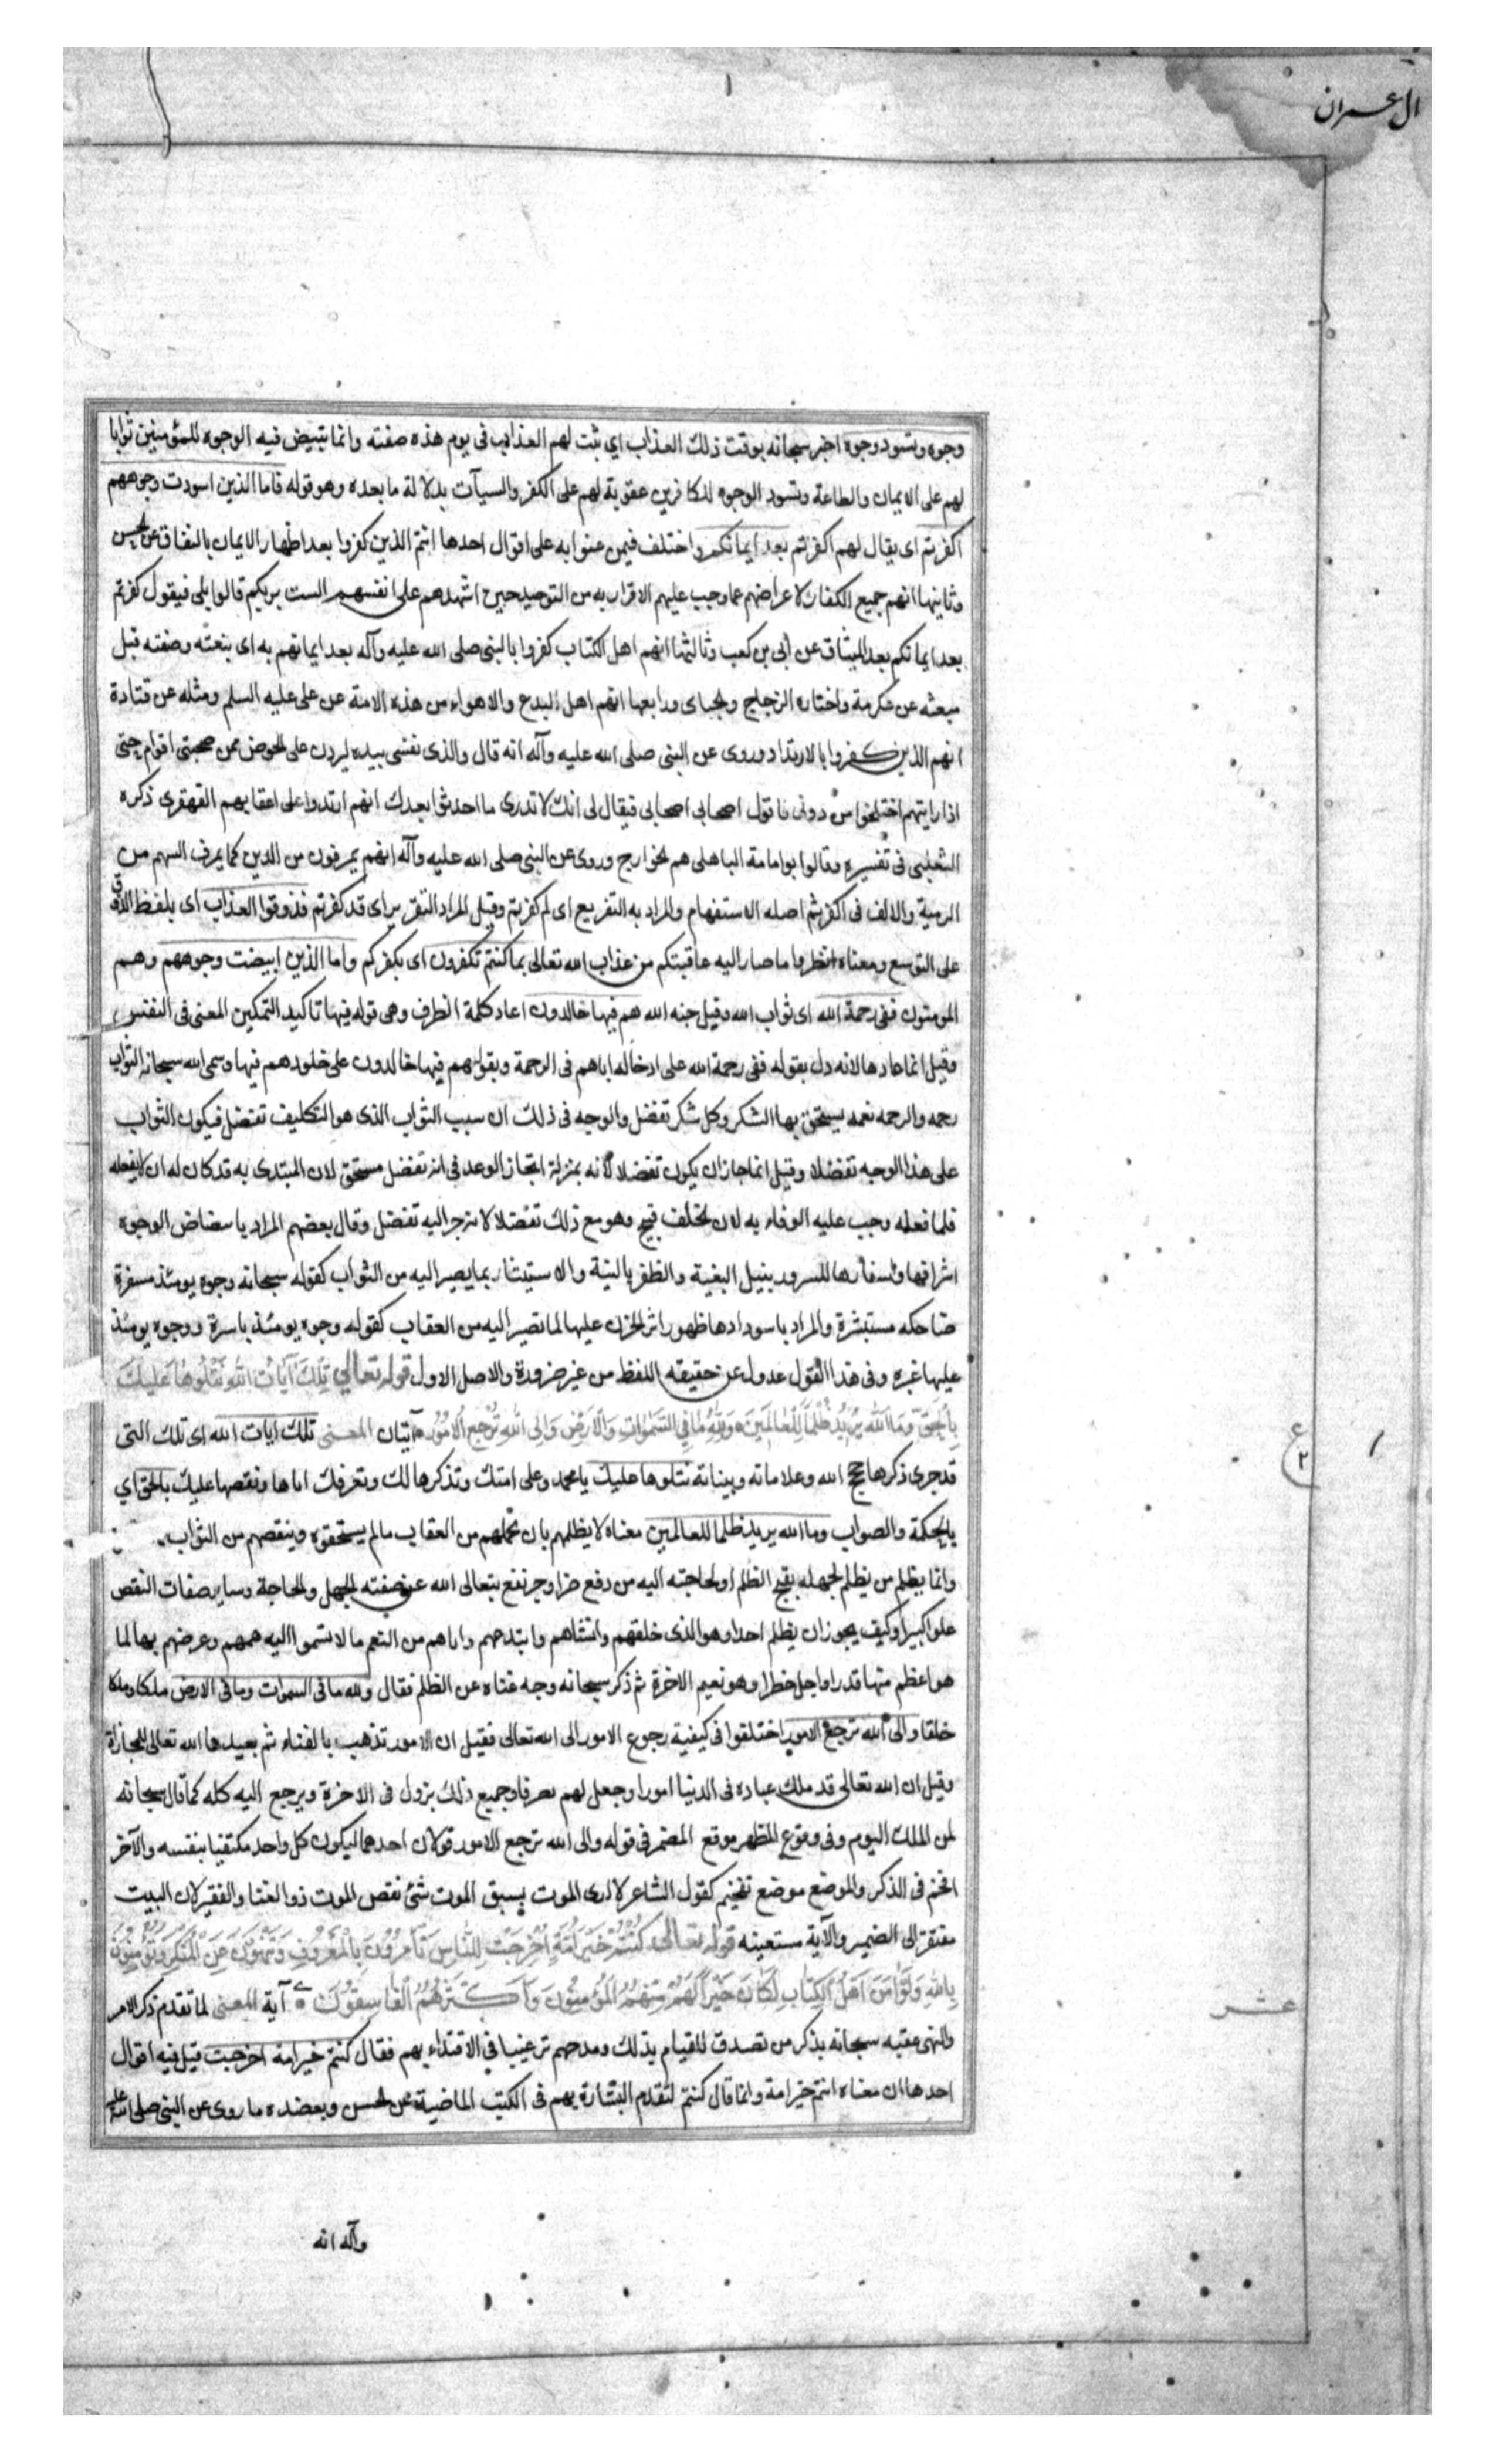 ال عمران
وجوه وتسود وجوه اخبر سبحانه بوقت ذلك العذاب اي ثبت لهم العذاب فى يوم هذه صفته وانما تبيض فيه الوجوه للمؤمنين ثوابا
لهم على الايمان والطاعة وتسود الوجوه للكافرين عقوبة لهم على الكفر والسيآت بدلالة ما بعده وهو قوله فاما الذين اسودت وجوههم
اكفرتم اى يقال لهم اكفرتم بعد ايمانكم واختلف فيمن عنوا به على اقوال احدها انتم الذين كفروا بعد اظهار الايمان بالنفاق عن الحسن
وثانيها انهم جميع الكفار لاعراضهم عما وجب عليهم الاقرار به من التوحيد حين اشهدهم على انفسهم الست بربكم قالوا بلى فيقول كفرتم
بعد ايمانكم بعد الميثاق عن ابى بن كعب وثالثها انهم اهل الكتاب كفروا بالنبى صلى الله عليه وآله بعد ايمانهم به اى بنعته وصفته قبل
مبعثه عن عكرمة واختاره الزجاج والجباى ورابعها انهم اهل البدع والاهواء من هذه الامة عن على عليه السلم ومثله عن قتادة
انهم الذين كفروا بالارتداد وروى عن النبى صلى الله عليه وآله انه قال والذى نفسى بيده ليردن على الحوض ممن صحبتى اقوام حتى
اذا رايتهم اختلجوا من دونى فاقول اصحابى اصحابى فيقال لى انك لا تدرى ما احدثوا بعدك انهم ارتدوا على اعقابهم القهقرى ذكره
الثعلبى فى تفسيره وقالوا بوامامة الباهلى هم الخوارج وروى عن النبى صلى الله عليه وآله انهم يمرقون من الدين كما يمرق السهم من
الرمية والالف فى اكفرتم اصله الاستفهام والمراد به التقريع اى لم كفرتم وقيل المراد التقرير اى قد كفرتم فذوقوا العذاب اى بلفظ الذوق
على التوسع ومعناه انظروا ما صار اليه عاقبتكم من عذاب الله تعالى بما كنتم تكفرون اى بكفركم واما الذين ابيضت وجوههم وهم
المومنون ففى رحمة الله اى ثواب الله وقيل جنه الله هم فيها خالدون اعاد كلمة الظرف وهى قوله فيها تاكيد التمكين المعنى فى النفس
وقيل انما عادها لانه دل بقوله ففى رحمة الله على ادخاله اياهم فى الرحمة وبقولهم فيها خالدون على خلودهم فيها وسمى الله سبحانه الثواب
رحمه والرحمه نعمه يستحق بها الشكر وكل شكر تفضل والوجه فى ذلك ان سبب الثواب الذى هو التكليف تفضل فيكون الثواب
على هذا الوجه تفضلا وقيل انما جاز ان يكون تفضلا لانه بمنزلة انجاز الوعد فى انه تفضل مستحق لان المبتدى به قد كان له ان لا يفعله
فلما فعله وجب عليه الوفاء به لان الخلف قبيح وهو مع ذلك تفضلا لانه جر اليه تفضل وقال بعضهم المراد بابيضاض الوجوه
اشراقها واسفارها للسرور بنيل البغية والظفر بالمنية والاستبشار بما يصير اليه من الثواب كقوله سبحانه وجوه يومئذ مسفرة
ضاحكه مستبشرة والمراد باسودادها ظهور اثر الحزن عليها لما تصير اليه من العقاب كقوله وجوه يومئذ باسرة ووجوه يومئذ
عليها غبره وفى هذا القول عدول عن حقيقه اللفظ من غير ضرورة والاصل الاول قوله تعالى تِلْكَ آيَاتُ اللهِ نَتْلُوهَا عَلَيْكَ
بِالْحَقِّ وَمَا اللهُ يُرِيدُ ظُلْمًا لِلْعَالَمِينَ وَلِلّهِ مَا فِي السَّمٰوَاتِ وَالْاَرْضِ وَاِلَى اللهِ تُرْجَعُ الْاُمُوُر آيتان المعنى تلك ايات الله اى تلك التى
قد جرى ذكرها حج الله وعلاماته وبيناته نتلوها عليك يا محمد وعلى امتك وتذكرها لك وتعرفك اياها ونقصها عليك بالحق اي
بالحكمة والصواب وما الله يريد ظلما للعالمين معناه لا يظلمهم بان يحملهم من العقاب ما لم يستحقوه وينقصهم من الثواب
وانما يظلم من يظلم لجهله بقبح الظلم او لحاجته اليه من دفع ضر او جر نفع يتعالى الله عن صفته الجهل والحاجة وساير صفات النقص
علوا كبيرا وكيف يجوز ان يظلم احدا وهو الذى خلقهم وانشاهم وابتداهم واتاهم من النعم ما لا تسموا اليه هممهم وعرضهم بها لما
هو اعظم منها قدرا واجل خطرا وهو نعيم الاخرة ثم ذكر سبحانه وجه غناه عن الظلم فقال ولله ما فى السموات وما فى الارض ملكا وملكا
خلقا والى الله ترجع الامور اختلفوا فى كيفية رجوع الامور الى الله تعالى فقيل ان الامور تذهب بالفناء ثم يعيدها الله تعالى للمجازاة
وقيل ان الله تعالى قد ملك عباده فى الدنيا امورا وجعل لهم تصرفا وجميع ذلك يزول فى الاخرة ويرجع اليه كله كما قال سبحانه
لمن الملك اليوم وفى وقوع المظهر موقع المضمر فى قوله والى الله ترجع الامور قولان احدهما ليكون كل واحد مكتفيا بنفسه والآخر
افخم فى الذكر والموضع موضع تفخيم كقول الشاعر لا ارى الموت يسبق الموت شئ نغص الموت ذوا الغنا والفقير لان البيت
مفتقر الى الضمير والآية مستعينه قوله تعالى كُنْتُمْ خَيْرَ اُمَّةٍ اُخْرِجَتْ لِلنَّاسِ تَأْمُرُونَ بِالْمَعْرُوفِ وَتَنْهَوْنَ عَنِ الْمُنْكَرِ وَتُؤْمِنُونَ
بِاللهِ وَلَوْ اٰمَنَ اَهْلُ الْكِتَابِ لَكَانَ خَيْرًا لَهُمْ مِنْهُمُ الْمُؤْمِنُونَ وَاَكْثَرُهُمُ الْفَاسِقُونَ آية المعنى لما تقدم ذكر الامر
والنهى عقبه سبحانه بذكر من تصدق للقيام بذلك ومدحهم ترغيبا فى الاقتداء بهم فقال كنتم خير امة اخرجت قيل فيه اقوال
احدها ان معناه انتم خير امة وانما قال كنتم لتقدم البشارة بهم فى الكتب الماضية عن الحسن ويعضده ما روى عن النبى صلى الله عليه
وآله انه
ع
٢
عشر